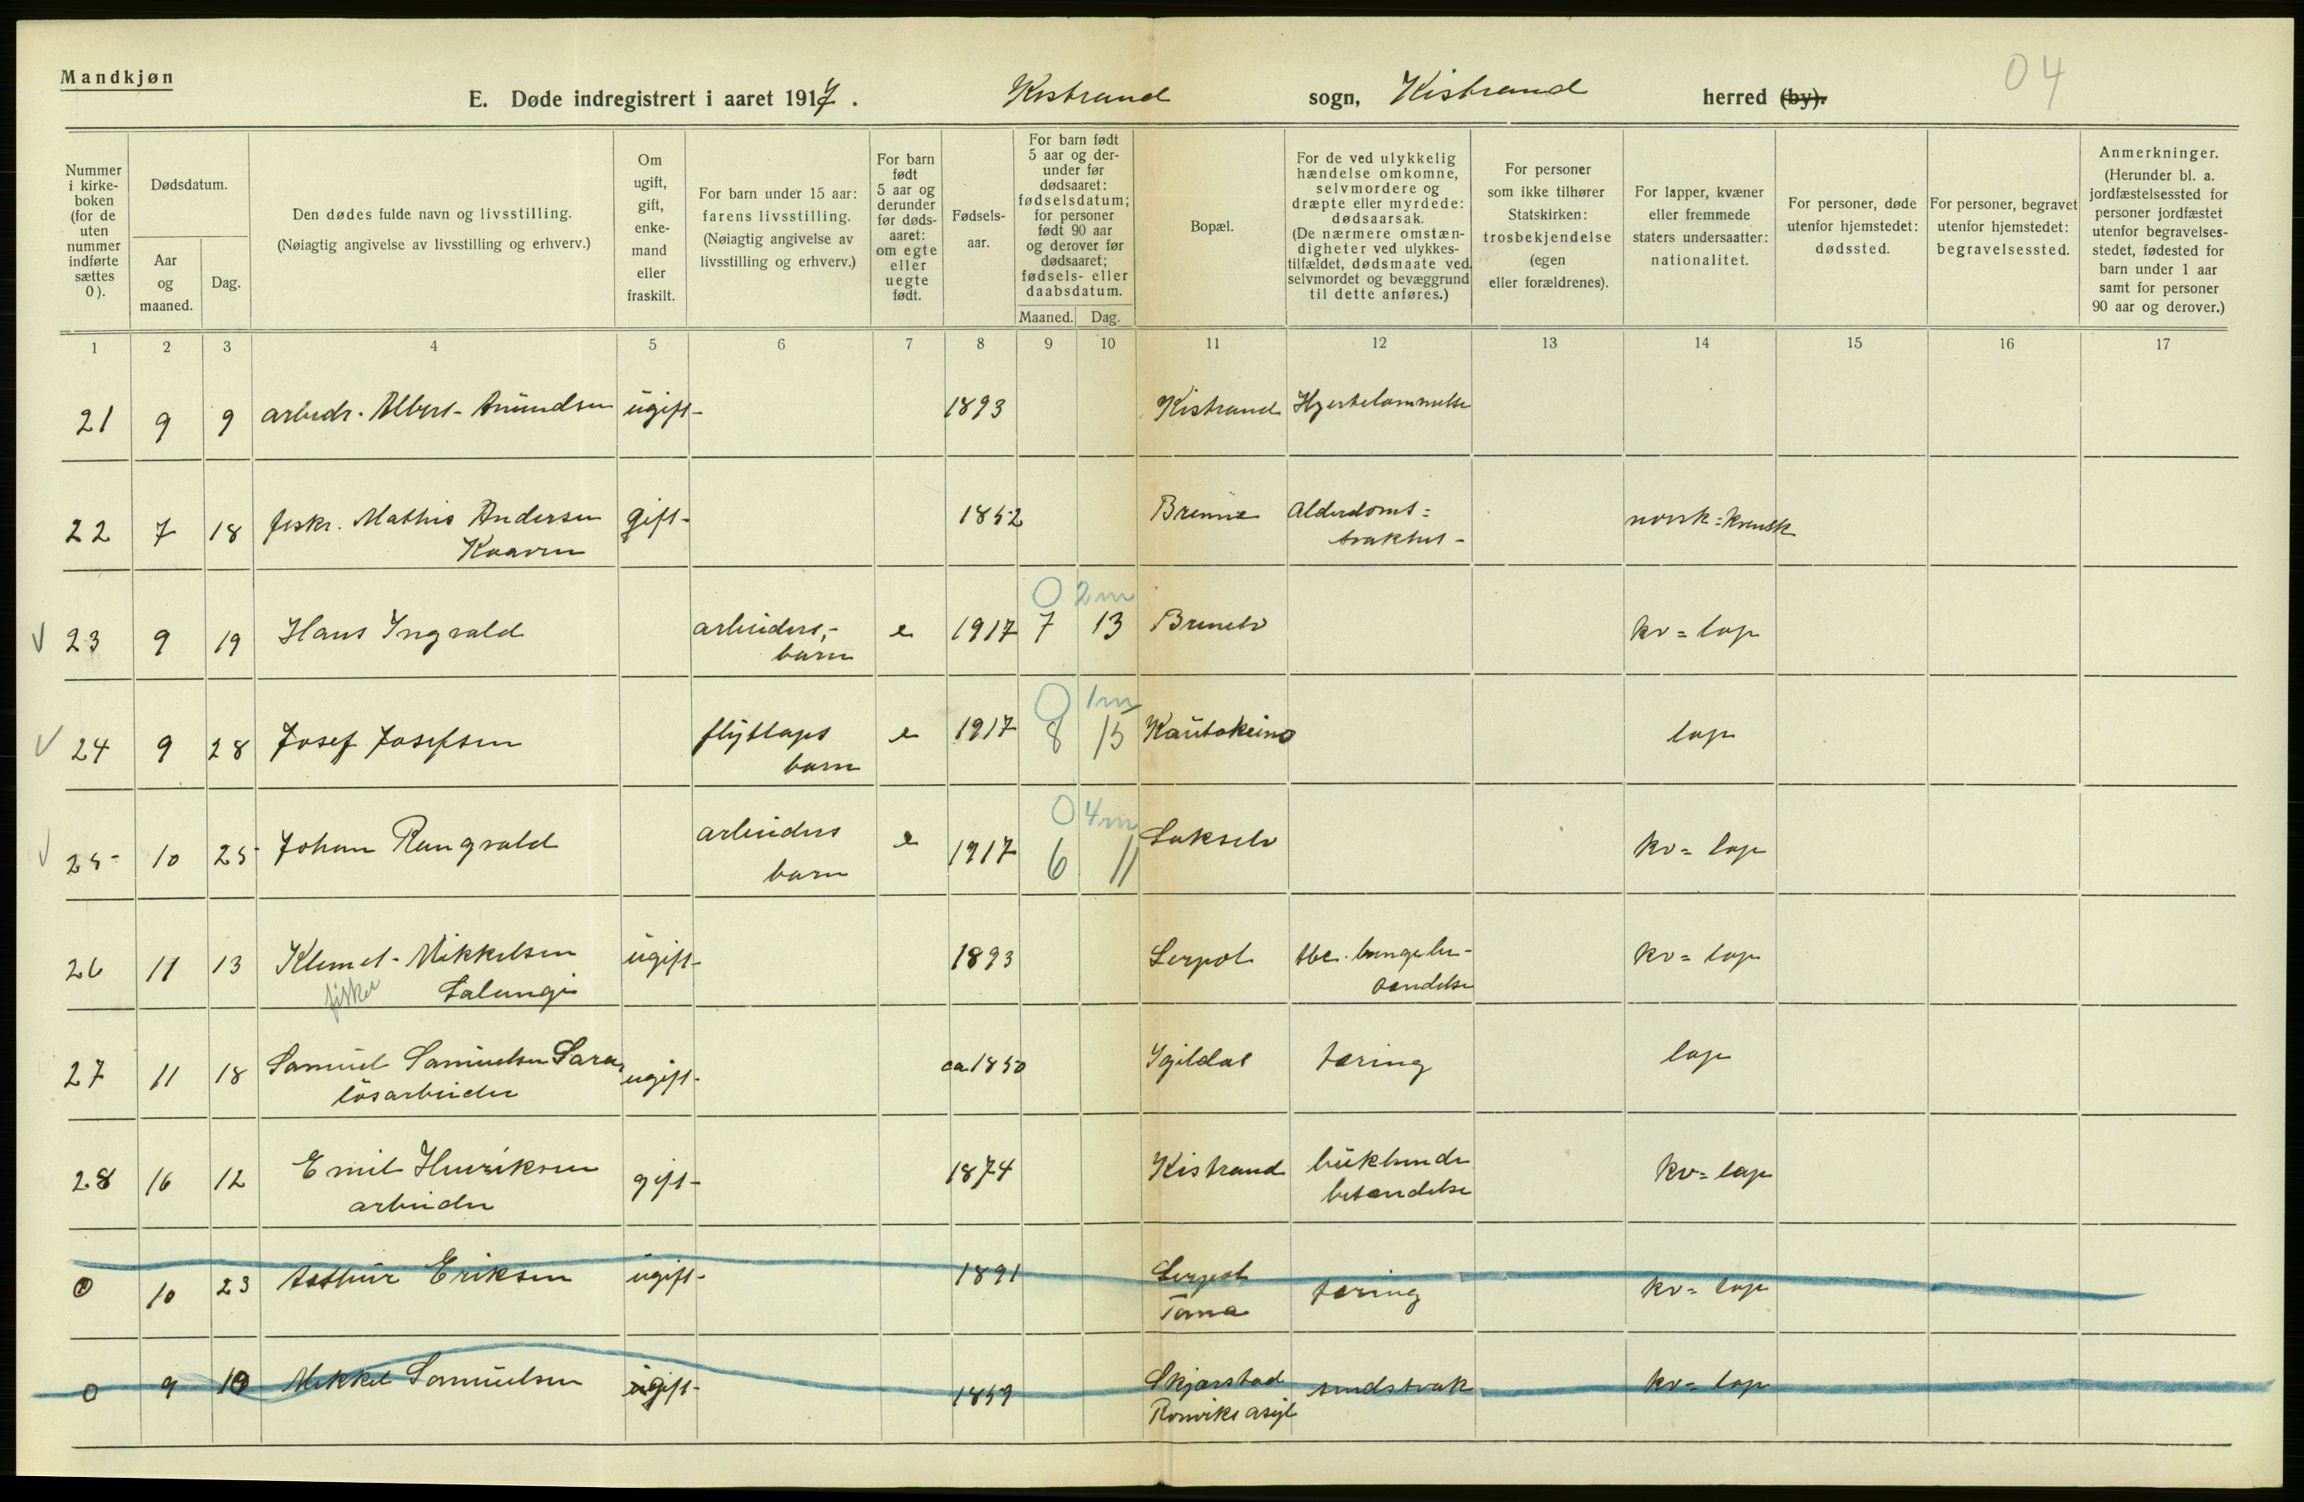 Mandkjøn
04
E. Døde indregistrert i aaret 1917. Kistrand sogn, Kistrand herred (by).
Nummer i kirke-boken (for de uten nummer indførte sættes 0).
Dødsdatum.
Aar og maaned.
Dag.
Den dødes fulde navn og livsstilling.
(Nøiagtig angivelse av livsstilling og erhverv.)
Om ugift, gift, enke-mand eller fraskilt.
For barn under 15 aar: farens livsstilling.
(Nøiagtig angivelse av livsstilling og erhverv.)
For barn født 5 aar og derunder før døds-aaret: om egte eller uegte født.
Fødsels-aar.
For barn født 5 aar og der-under før dødsaaret: fødselsdatum; for personer født 90 aar og derover før dødsaaret; fødsels- eller daabsdatum.
Maaned. Dag.
Bopæl.
For de ved ulykkelig hændelse omkomne, selvmordere og dræpte eller myrdede: dødsaarsak.
(De nærmere omstæn-digheter ved ulykkes-tilfældet, dødsmaate ved selvmordet og bevæggrund til dette anføres.)
For personer som ikke tilhører Statskirken: trosbekjendelse (egen eller forældrenes).
For lapper, kvæner eller fremmede staters undersaatter: nationalitet.
For personer, døde utenfor hjemstedet: dødssted.
For personer, begravet utenfor hjemstedet: begravelsessted.
Anmerkninger.
(Herunder bl. a. jordfæstelsessted for personer jordfæstet utenfor begravelses-stedet, fødested for barn under 1 aar samt for personer 90 aar og derover.)
1 2 3 4 5 6 7 8 9 10 11 12 13 14 15 16 17
21 9 9 arbeidr. Albert Amundsen ugift 1893 Kistrand Hjertelammelse
22 7 18 fiskr. Mathis Andersen gift 1852 Brenne Alderdoms= norsk=kvensk
Kaaven svakhet
0 2m
23 9 19 Hans Ingvald arbeiders- e 1917 7 13 Brenelv kv=lap
barn
0 1m
24 9 28 Josef Josefsen flytlaps e 1917 8 15 Kautokeino lap
barn
0 4m
25 10 25 Johan Rangvald arbeiders e 1917 6 11 Lakselv kv=lap
barn
26 11 13 Klemet Mikkelsen ugift 1893 Leirpol tbc. lungebe- kv=lap
fisker Salangi tændelse
27 11 18 Samuel Samuelsen Sara, ugift ca 1850 Igildas tæring lap
løsarbeider
28 16 12 Emil Henriksen gift 1874 Kistrand bukhinde kv=lap
arbeider betændelse
0 10 23 Arthur Eriksen ugift 1891 Leirpol tæring kv=lap
Tana
0 9 10 Mikkel Samuelsen ugift 1859 Skjærstad sindssvak kv=lap
Rønviks asyl